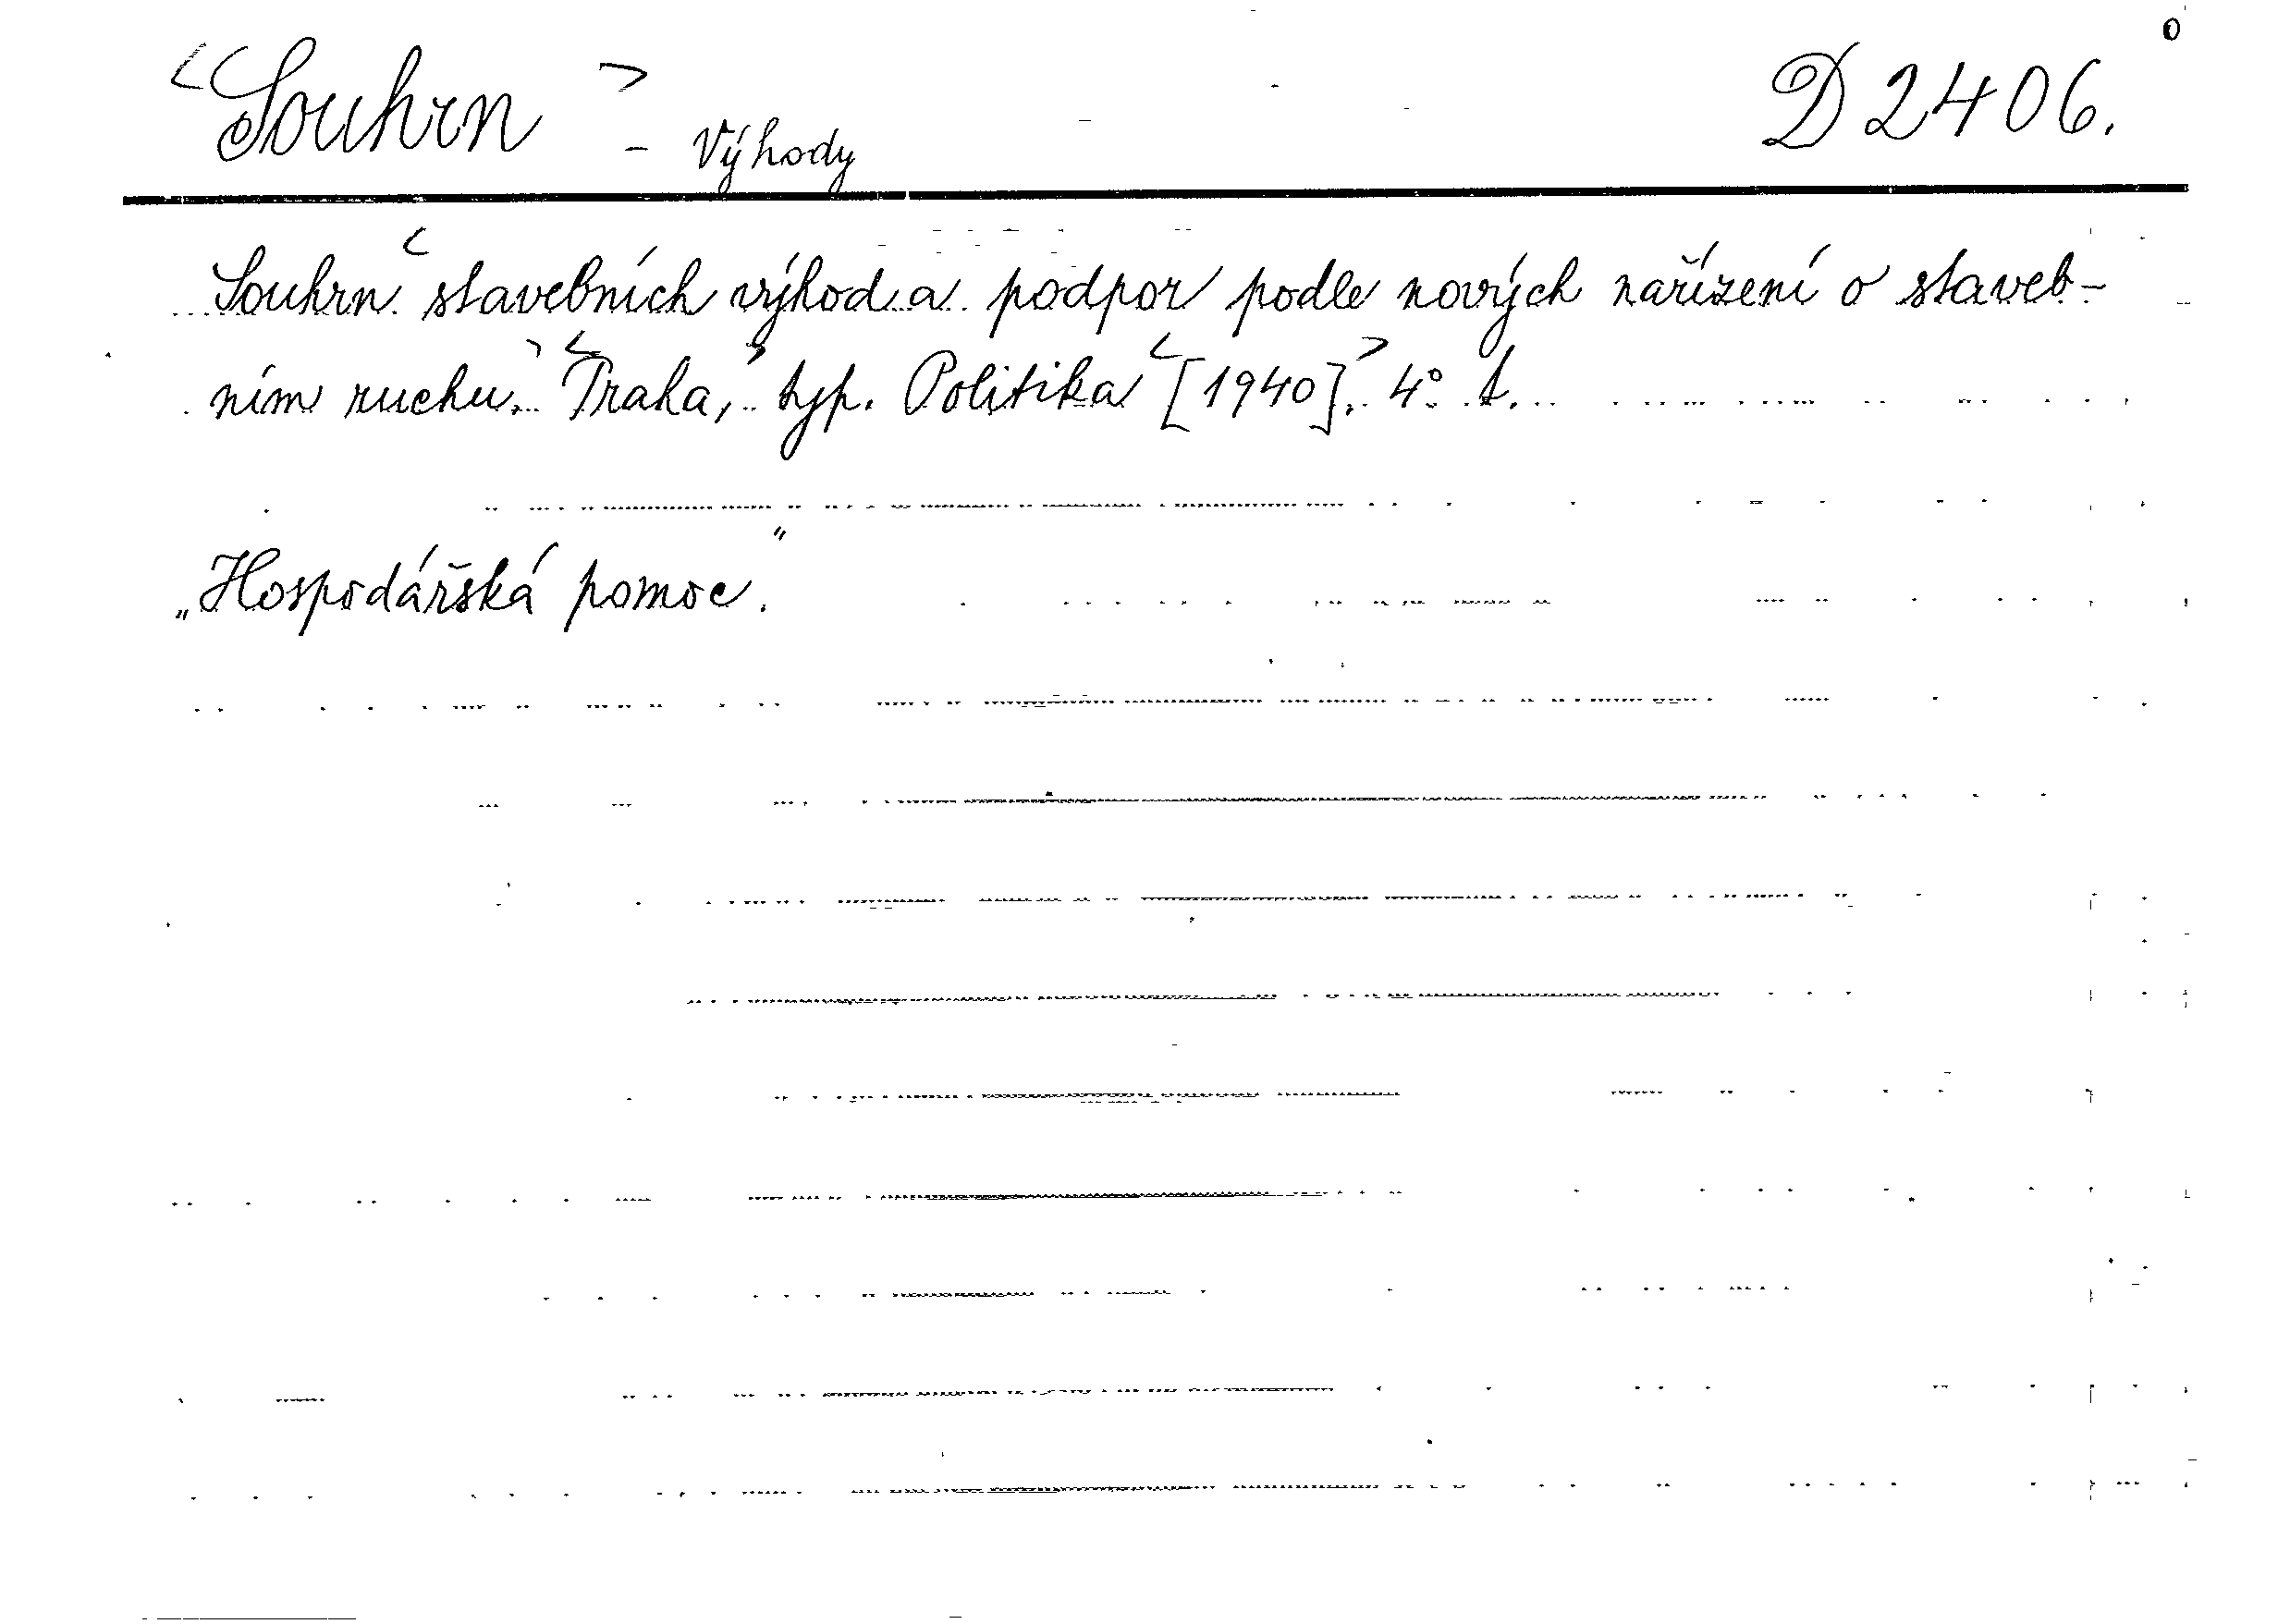 <Souhrn> - Výhody D 2406.
Souhrn< stavebních výhod a podpor podle nových nařízení o staveb-
ním ruchu.> <Praha,> typ. Politika <[1940].> 4° t.
„Hospodářská pomoc."